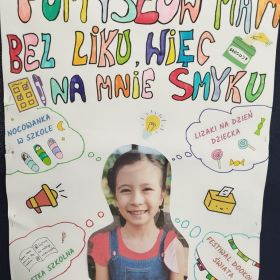 POMYSŁÓW MAM
BEZ LIKU, WIĘC
NA MNIE SMYKU
NOCOWANKA
W SZKOLE
LIZAKI NA DZIEŃ
DZIECKA
SZKOLNA
FESTIWAL DOOKOŁA
ŚWIATA